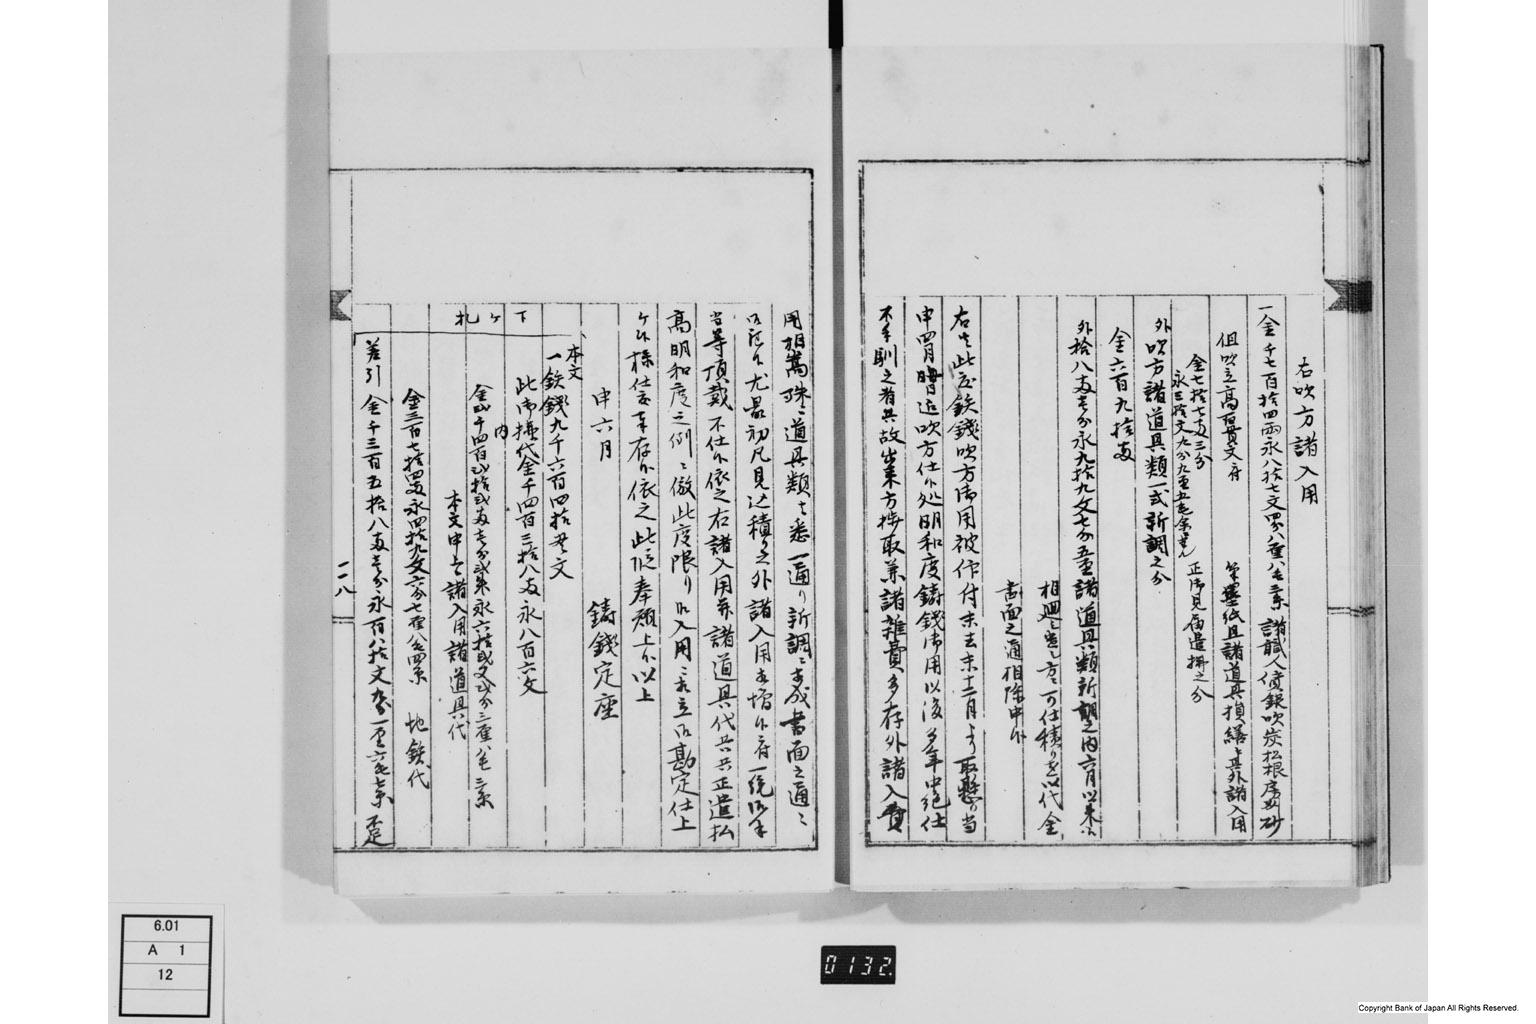 右吹方諸入用
一金千七百拾四両永八拾七文四分八厘八毛三糸 諸職人賃銀吹炭松根房州砂
筆墨紙且諸道具損繕其外諸入用
但吹立高百貫文ニ付
金七拾七両三分
永三拾文九分九厘五毛余
正御見届遣拂之分
外吹方諸道具類一式新調之分
金六百九拾両
外拾八両壱分永九拾九文七分五厘諸道具類新調之内六月以来
相廻し置し方ニ可仕積りを以代金
書面之通相除申候
右は此度鉄銭吹方御用被仰付末去未十二月より取懸り当
申四月晦日迄吹方仕候処明和度鋳銭御用以後多年中絶仕
不手馴之者共故出来方捗取兼諸雑費多存外諸入費
用相嵩殊ニ道具類は悉一通り新調ニ相成書面之通ニ
御座候尤最初凡見込積り之外諸入用相増候ニ付一統
当等頂戴不仕候依之右諸入用并諸道具代共正遣払
高明和度之例ニ傚此度限り御入用ニ相立御勘定仕上
ケ候様仕度奉存候依之此段奉願上候以上
申六月
鋳銭定座
下ケ札
本文
一鉄銭九千六百四拾貫文
此御拂代金千四百三拾八両永八百六文
内
金弐千四百弐拾弐両壱分弐朱永六拾弐文弐分三厘八毛三糸
本文申上候諸入用諸道具代
金三百七拾四両永四拾九文六分七厘八毛四糸 地鉄代
差引金千三百五拾八両壱分永百八拾文九分一厘六毛七糸 不足
一一八
6.01
A 1
12
0132.
Copyright Bank of Japan All Rights Reserved.